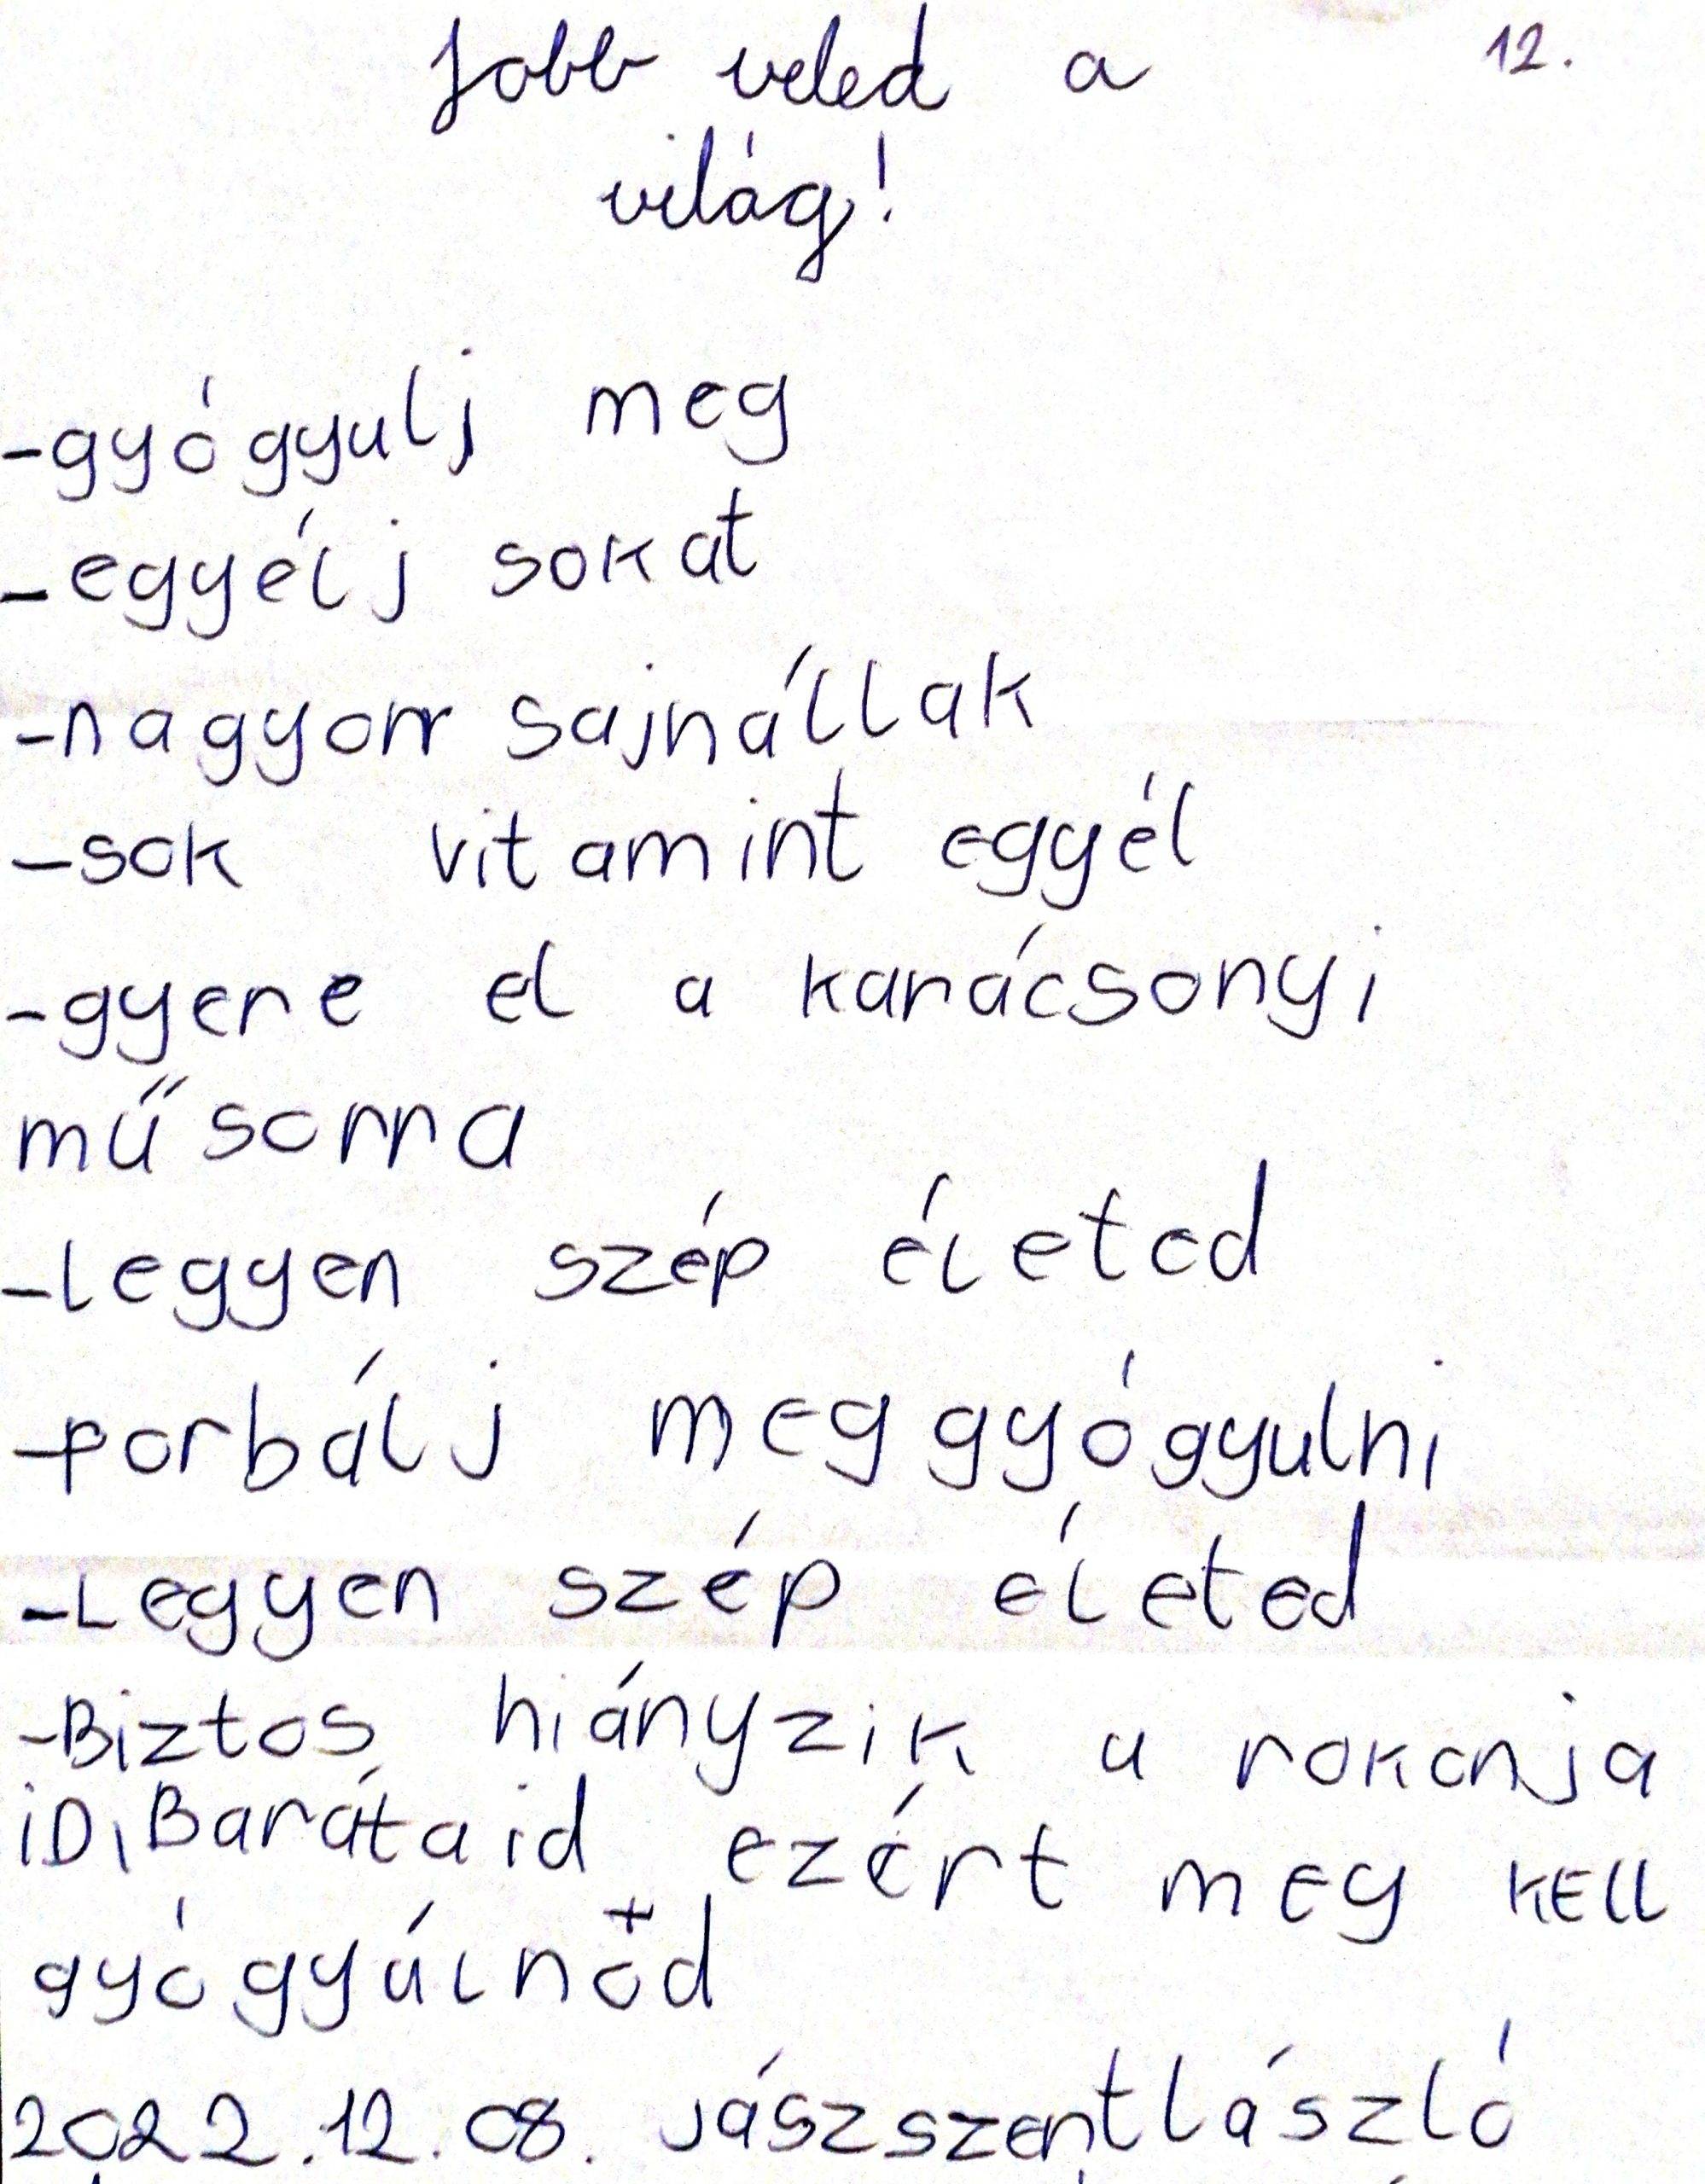 Jobb veled a 12.
világ!
-gyógyulj meg
-egyélj sokat
-nagyon sajnállak
-sok vitamint egyél
-gyere el a karácsonyi
műsorra
-legyen szép életed
-porbálj meggyógyulni
-Legyen szép életed
-Biztos hiányzik a rokonja
iD, Barátaid ezért meg KELL
gyógyúlnöd
2022.12.08. Jászszentlászló